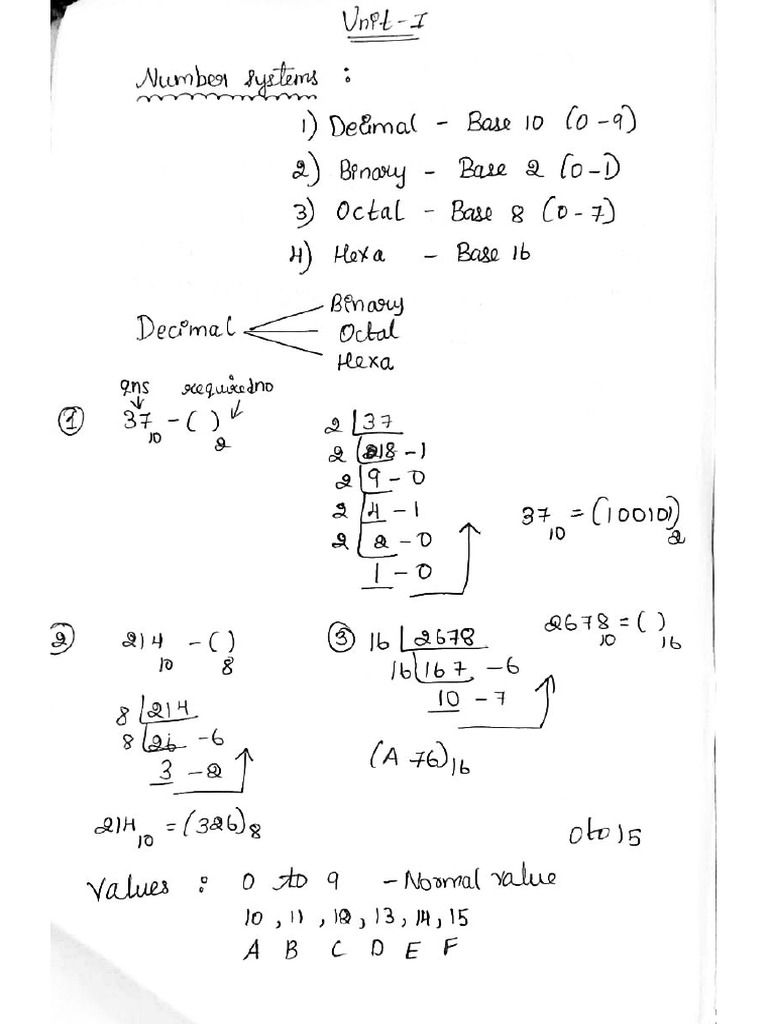 Unit-I
Number systems :
1) Decimal - Base 10 (0-9)
2) Binary - Base 2 (0-1)
3) Octal - Base 8 (0-7)
4) Hexa - Base 16
Decimal
Binary
Octal
Hexa
qns required no
① 37₁₀ - ( )₂
2 | 37
2 | 18 - 1
2 | 9 - 0
2 | 4 - 1
2 | 2 - 0
1 - 0
37₁₀ = (100101)₂
② 214₁₀ - ( )₈
8 | 214
8 | 26 - 6
3 - 2
214₁₀ = (326)₈
③ 16 | 2678
16 | 167 - 6
10 - 7
2678₁₀ = ( )₁₆
(A76)₁₆
0 to 15
Values : 0 to 9 - Normal value
10, 11, 12, 13, 14, 15
A B C D E F